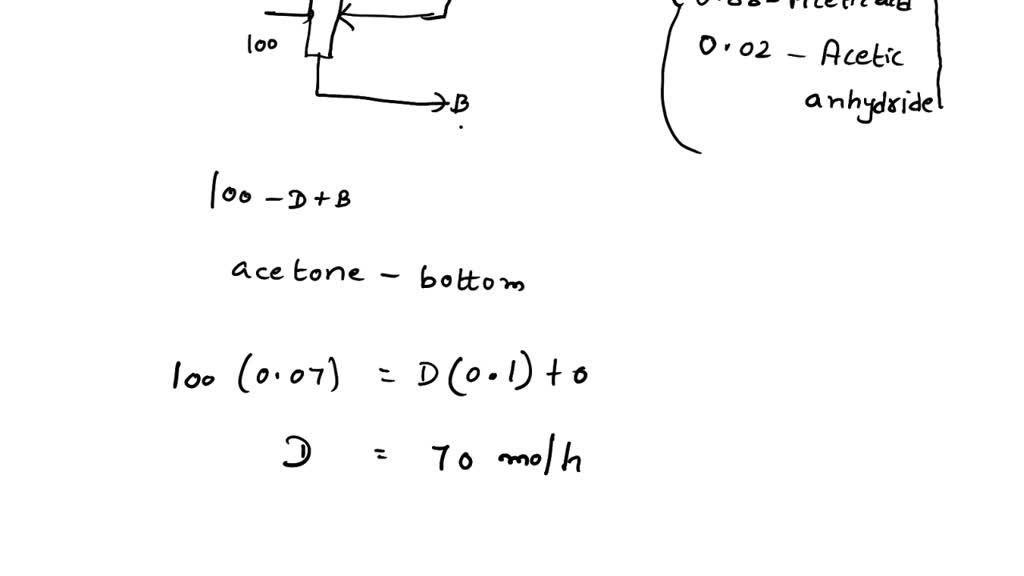 100
0.02 - Acetic
anhydride
B
100 - D + B
acetone - bottom
100 (0.07) = D(0.1) + 0
D = 70 mol/h